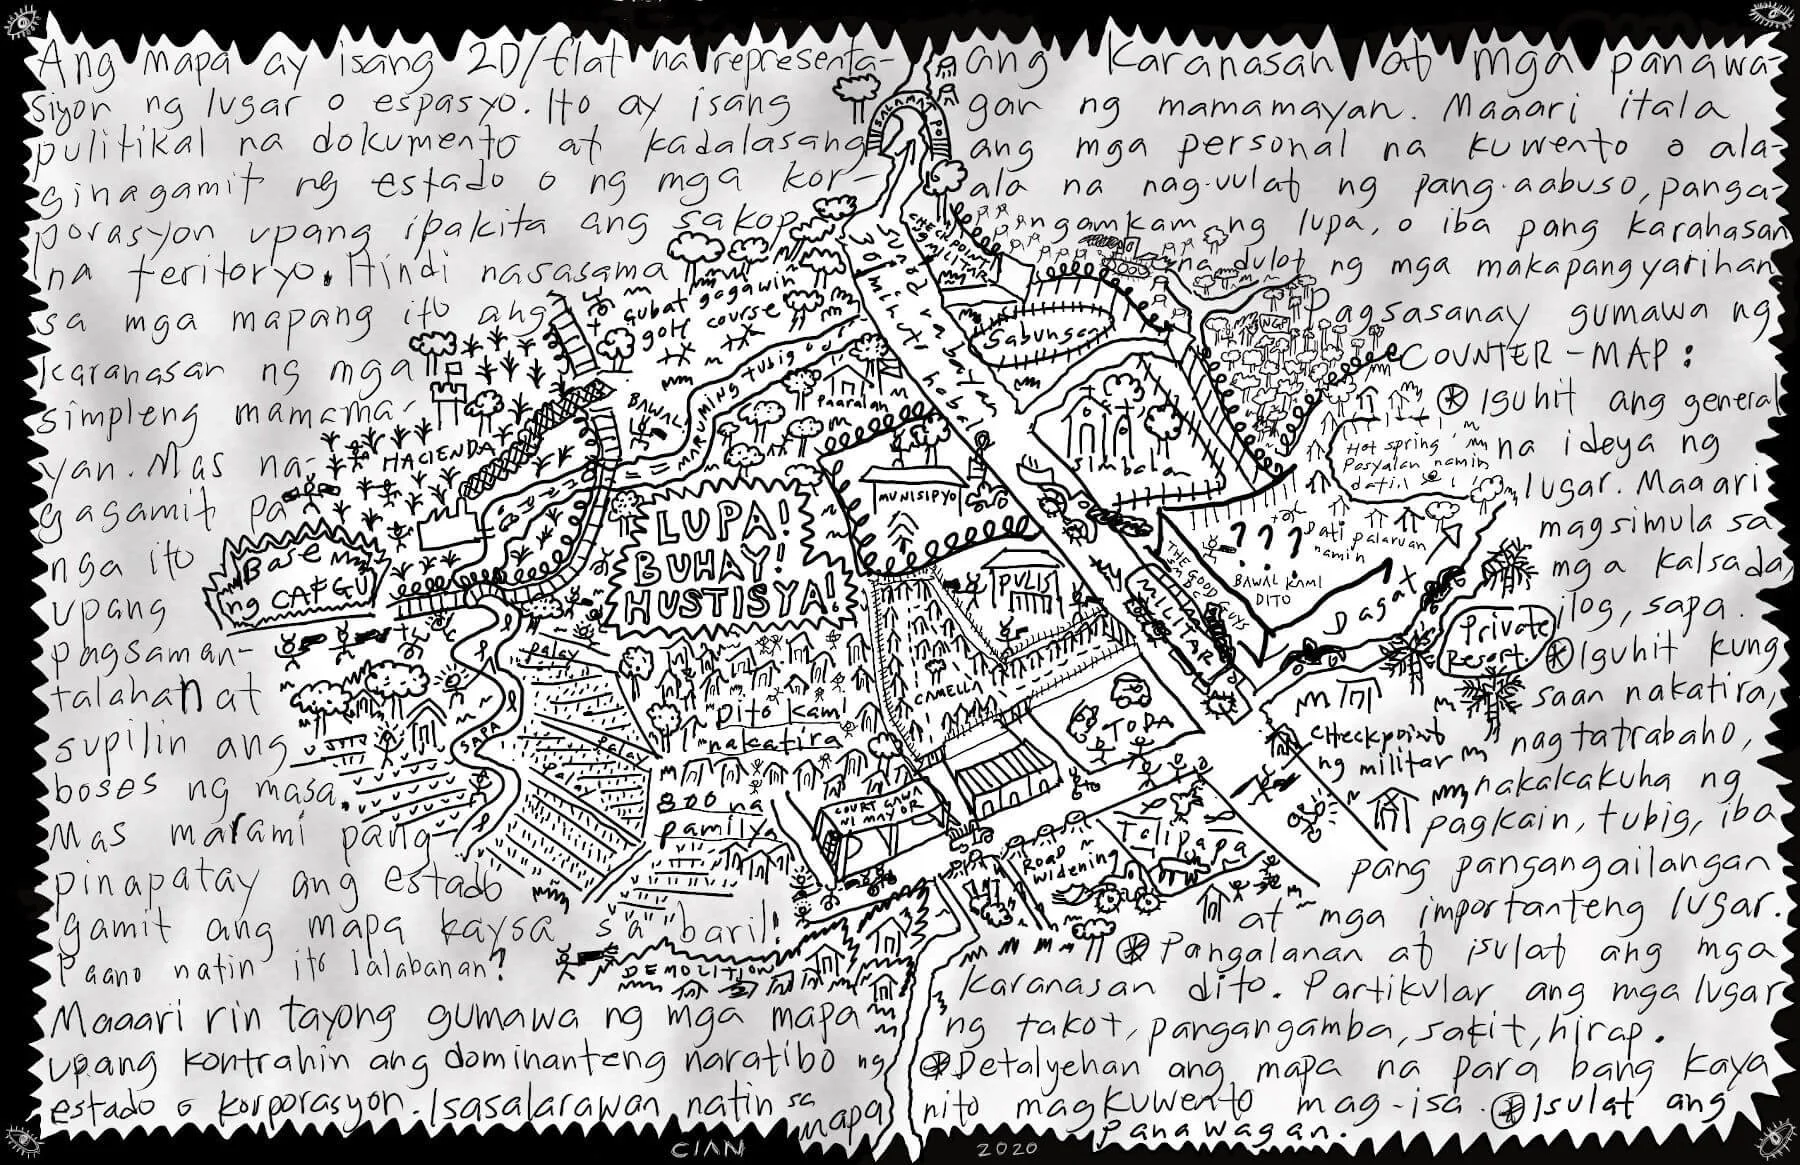 Ang mapa ay isang 2D/flat na representa-
siyon ng lugar o espasyo. Ito ay isang
pulitikal na dokumento at kadalasang
ginagamit ng estado o ng mga kor-
porasyon upang ipakita ang sakop
na teritoryo. Hindi nasasama
sa mga mapang ito ang
karanasan ng mga
simpleng mamama-
yan. Mas na-
gagamit pa
nga ito
upang
pagsaman-
talahan at
supilin ang
boses ng masa.
Mas marami pang
pinapatay ang estado
gamit ang mapa kaysa sa baril!
Paano natin ito lalabanan?
Maaari rin tayong gumawa ng mga mapa
upang kontrahin ang dominanteng naratibo ng
estado o korporasyon. Isasalarawan natin sa
mapa
ang karanasan at mga panawa-
gan ng mamamayan. Maaari itala
ang mga personal na kuwento o ala-
ala na nag-uulat ng pang-aabuso, panga-
ngamkam ng lupa, o iba pang karahasan
na dulot ng mga makapangyarihan
Pagsasanay gumawa ng
COUNTER-MAP:
* Iguhit ang general
na ideya ng
lugar. Maaari
magsimula sa
mga kalsada,
ilog, sapa.
* Iguhit kung
saan nakatira,
nagtatrabaho,
nakakakuha ng
pagkain, tubig, iba
pang pangangailangan
at mga importanteng lugar.
* Pangalanan at isulat ang mga
karanasan dito. Partikular ang mga lugar
ng takot, pangangamba, sakit, hirap.
* Detalyehan ang mapa na para bang kaya
nito magkuwento mag-isa. * Isulat ang
panawagan.
SALAMAT PO
CHECKPOINT
NG MILITAR
Sabungan
NGP
gubat gagawin
golf course
BAWAL
MARUMING TUBIG
Paaralan
HACIENDA
Base ng
CAFGU
LUPA!
BUHAY!
HUSTISYA!
MUNISIPYO
Simbahan
Hot spring
Pasyalan namin
dati
???
pati palaruan
namin
BAWAL KAMI
DITO
THE GOOD GUYS
MILITAR
Dagat
Private
Resort
PULIS
CAMELLA
TODA
Checkpoint
ng militar
palay
palay
SAPA
Dito kami
nakatira
800 na
pamilya
COURT GAWA
NI MAYOR
ROAD
WIDENING
Talipapa
DEMOLITION
CIAN 2020